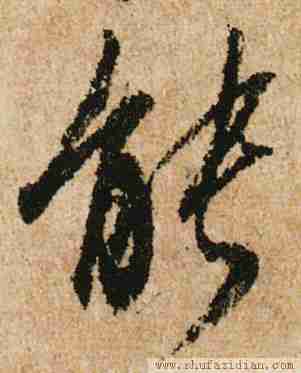 能
www.shufazidian.com